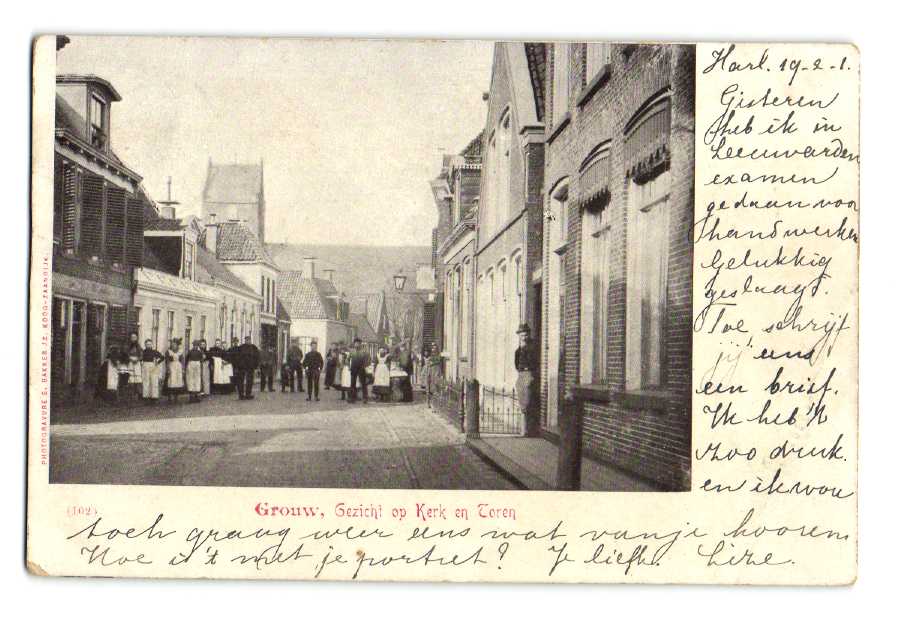 Harl. 19-2-1.
Gisteren
heb ik in
Leeuwarden
examen
gedaan voor
handwerken
Gelukkig
geslaagt.
Toe schrijf
jij eens
een brief.
Ik heb 't
zoo druk.
en ik wou
PHOTOGRAVURE S. BAKKER JZ. KOOG-ZAANDIJK.
(102)
Grouw, Gezicht op Kerk en Toren
toch graag weer eens wat van je hooren
Hoe is 't met je portret? Je liefh.